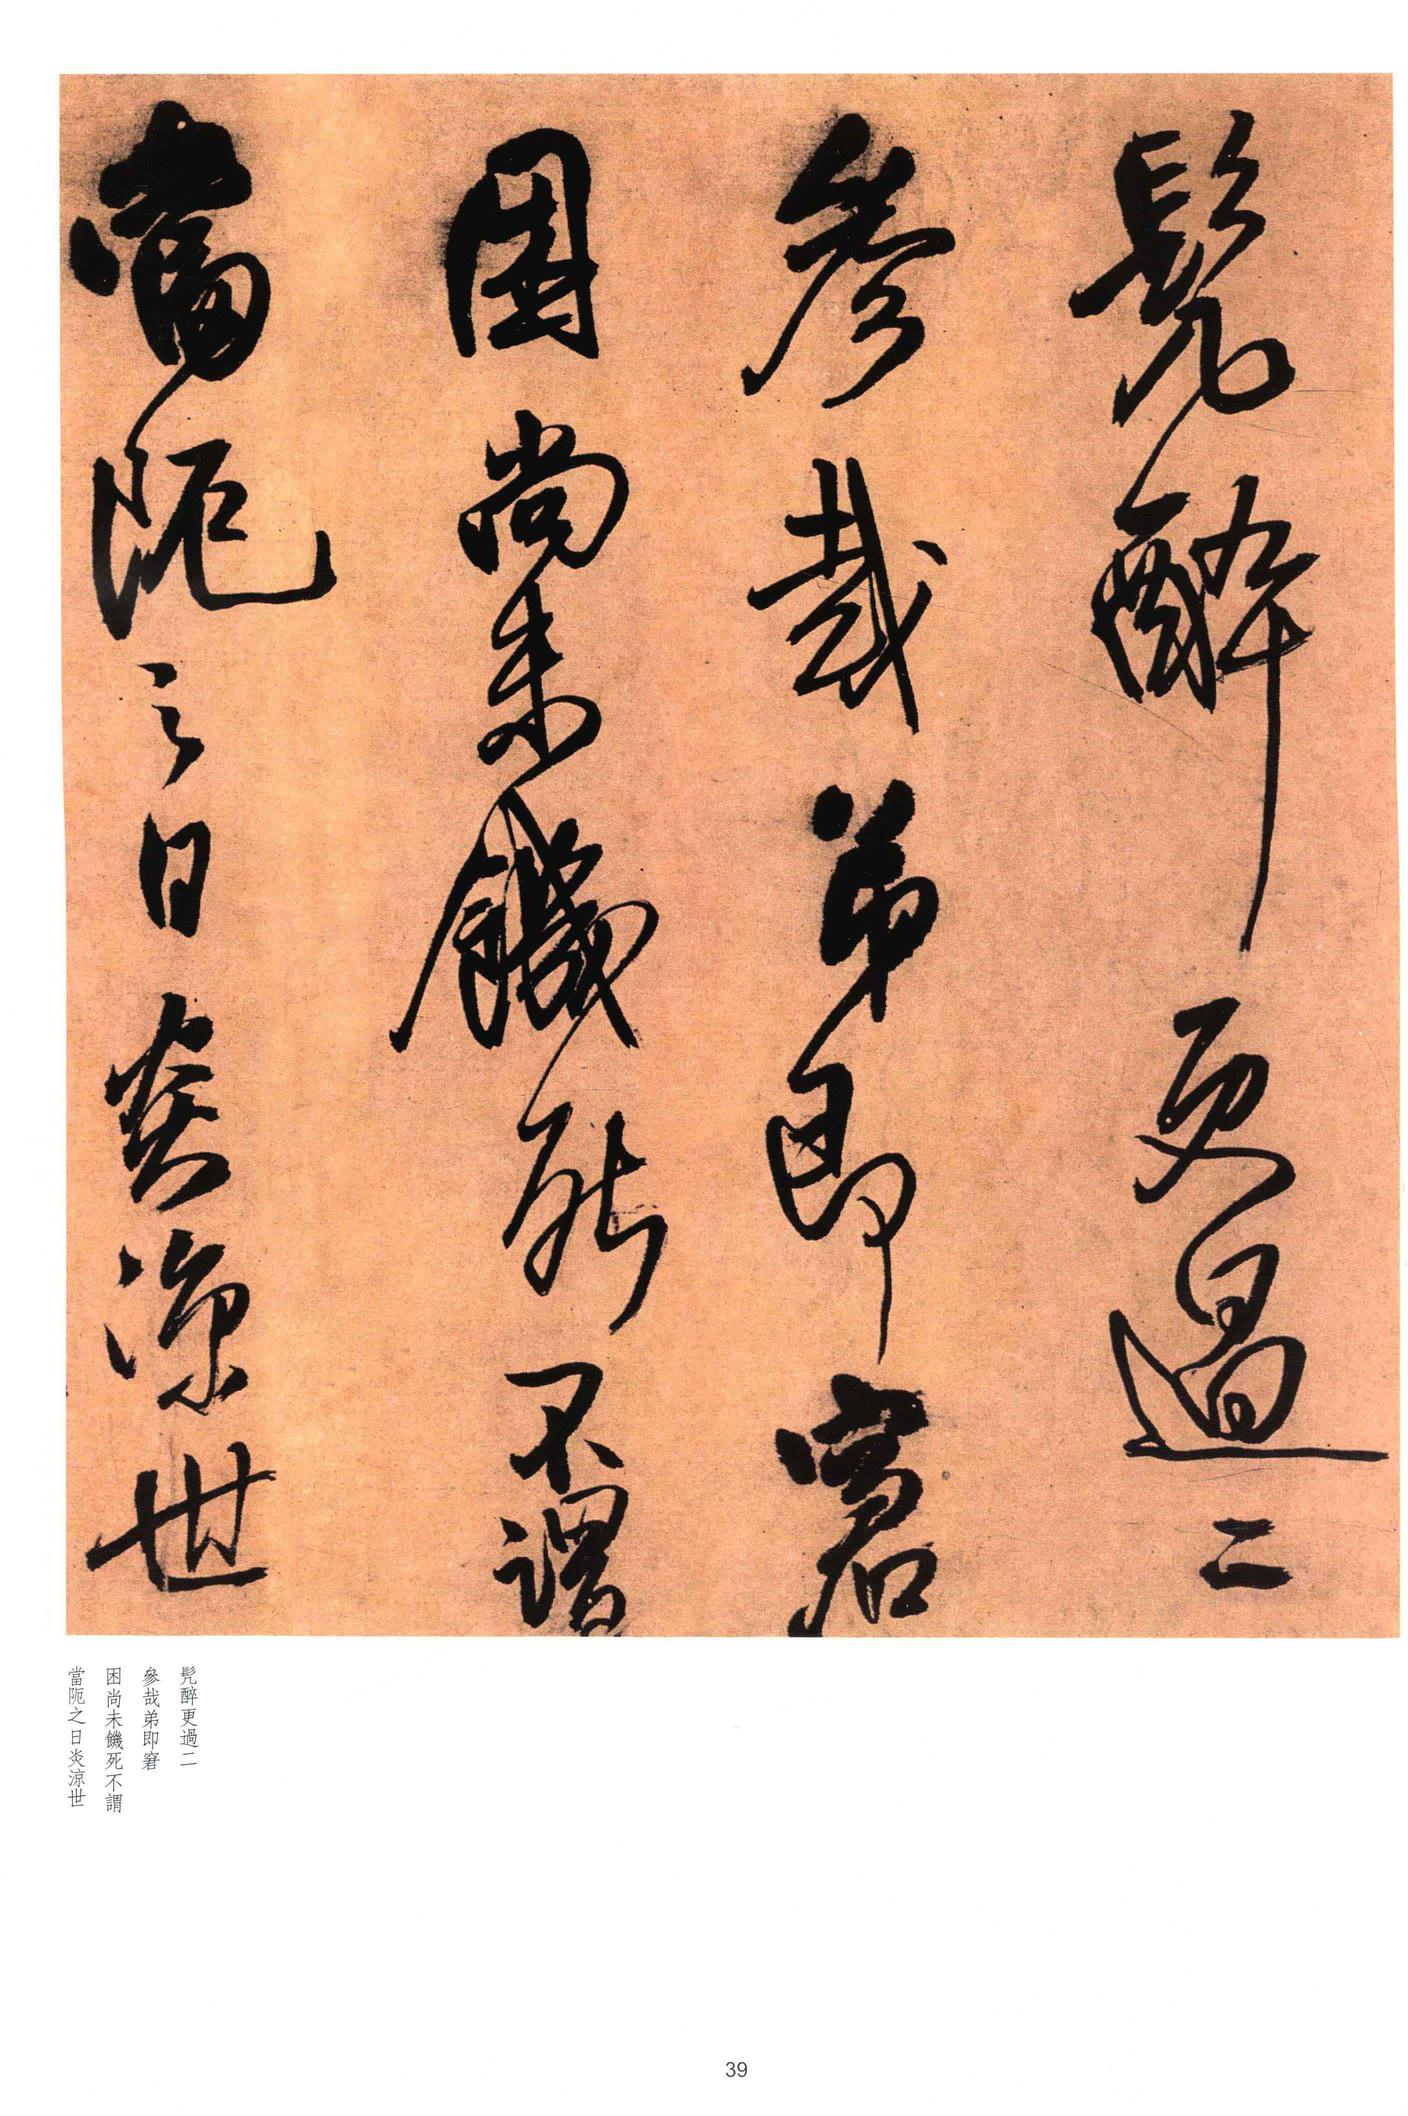 髡醉更過二
參哉弟即窘
困尚未饑死不謂
當阨之日炎涼世
髡醉更過二
參哉弟即窘
困尚未饑死不謂
當阨之日炎涼世
39